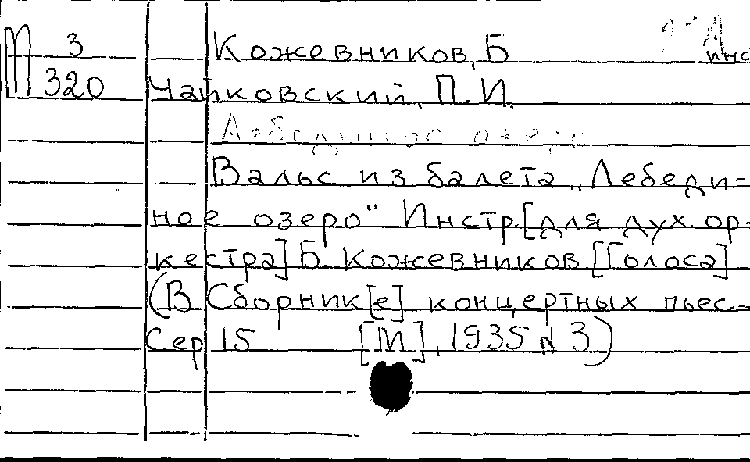 П 3 Кожевников, Б инс
320 Чайковский, П.И.
Лебединое озеро
Вальс из балета „Лебеди-
ное озеро" Инстр[для дух ор-
кестра] Б Кожевников [Голоса]
(В Сборник[е] концертных пьес-
Сер 15 [М], 1935 № 3)